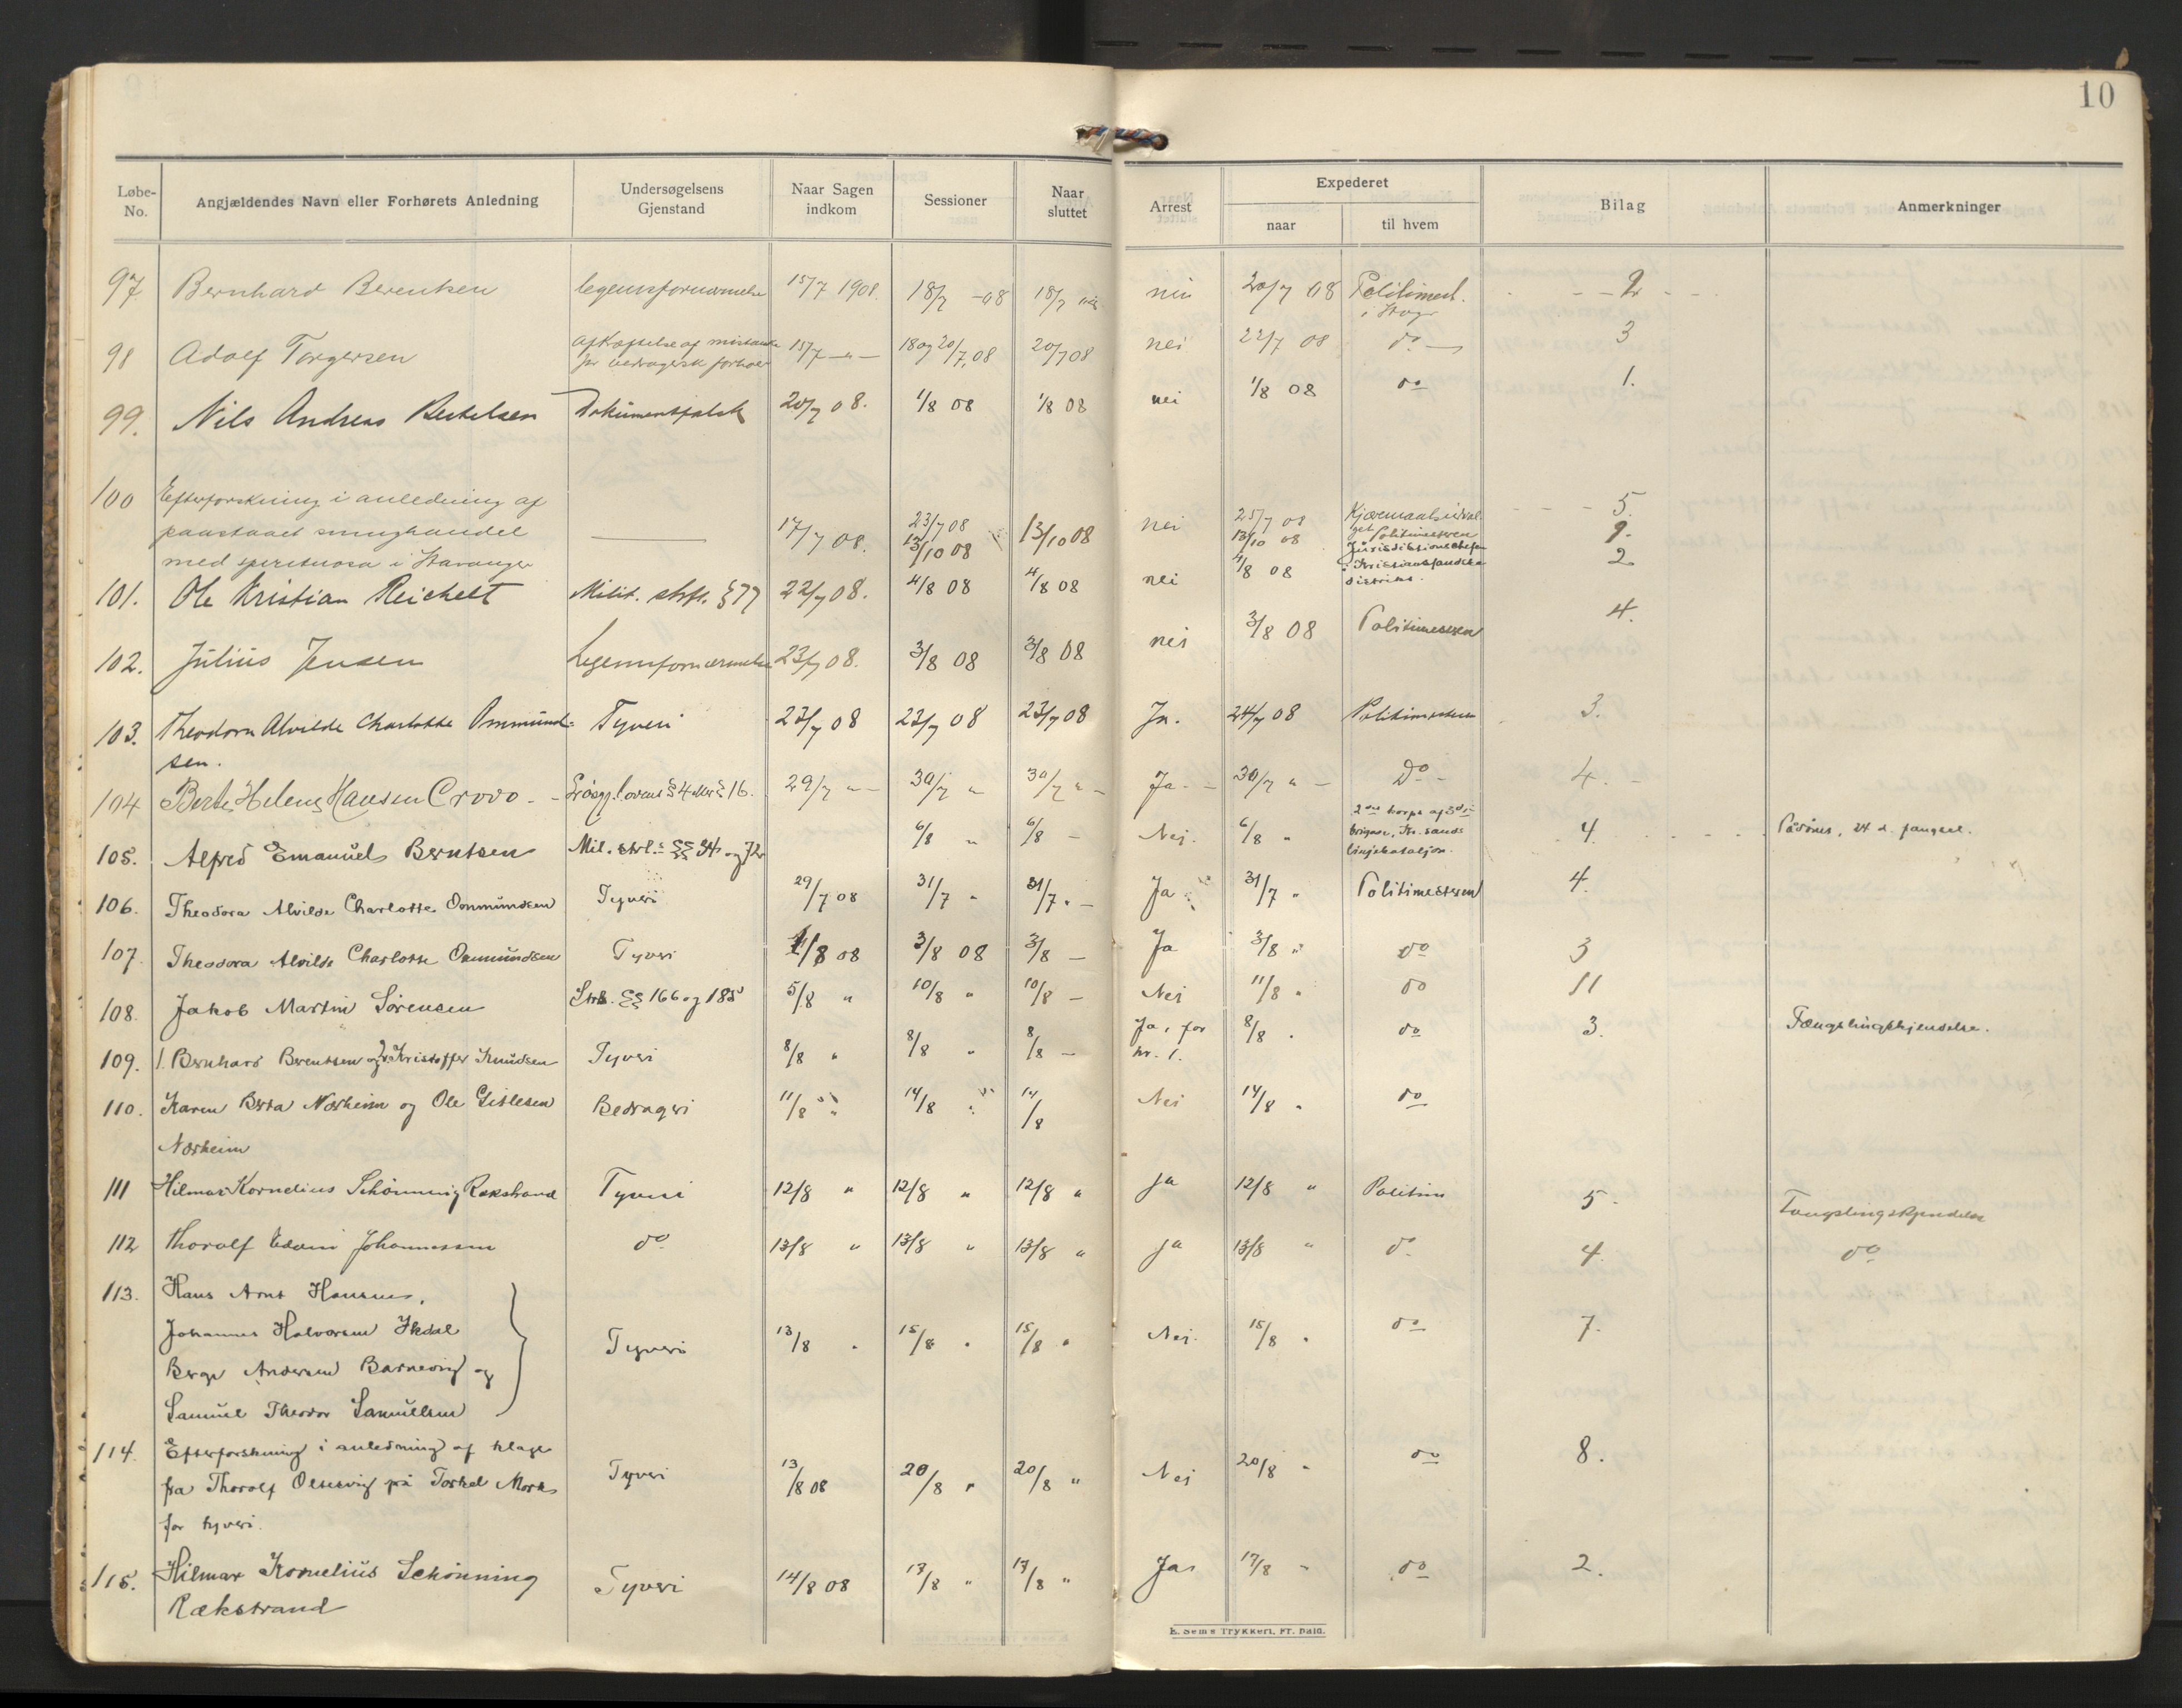 10
Løbe-No. Angjældendes Navn eller Forhørets Anledning Undersøgelsens Gjenstand Naar Sagen indkom Sessioner Naar sluttet Arrest Expederet naar til hvem Bilag Anmerkninger
97 Bernhard Berentsen legemsfornærmelse 15/7 1908. 18/7 -08 18/7 nei 20/7 08 Politimest. 2
i Stvgr
98 Adolf Torgersen afkræftelse af mistanke 15/7 -"- 18 og 20/7.08 20/7 08 nei 22/7 08 do 3
for bedragersk forhold
99. Nils Andreas Bertelsen Dokumentfalsk 20/7 08. 1/8 08 1/8 08 nei 1/8 08 do 1.
100 Efterforskning i anledning af
paastaaet smughandel 17/7 08. 23/7 08 13/10 08 nei 25/7 08 Kjæremaalsudval- 5.
med spirituosa i Stavanger 13/10 08 13/10 08 get Politimesteren 9.
101. Ole Kristian Reichelt Milit. strfl. § 77 22/7 08. 4/8 08 4/8 08 nei 4/8 08 Jurisdiktionschefen 2
i Kristianssandske
distrikt.
102. Julius Jensen Legemsfornærmelse 23/7 08. 3/8 08 3/8 08 nei 3/8 08 Politimesteren 4.
103. Theodora Alvilde Charlotte Ommund- Tyveri 23/7 08 23/7 08 23/7 08 Ja. 24/7 08 Politimesteren 3.
sen.
104 Berte Helene Hansen Crovo - Løsgj. lovens § 4 § 16. 29/7 " - 30/7 " 30/7 " - Ja - 30/7 " - Do - 4. -
105. Alfred Emanuel Berntsen Mil. strl. §§ 34 og 72 6/8 " 6/8 - Nei. 6/8 " 2det korps af 3die 4. Pådømt, 24 d. fængsel.
brigade, Kr.sands
linjebataljon.
106. Theodora Alvilde Charlotte Ommundsen Tyveri 29/7 08 31/7 " 31/7 " - Ja 31/7 " Politimesteren 4.
107. Theodora Alvilde Charlotte Ommundsen Tyveri 1/8 08 3/8 08 3/8 - Ja 3/8 " do 3
108. Jakob Martin Sørensen Strl. §§ 166 og 185 5/8 " 10/8 " 10/8 - Nei 11/8 " do 11
109. 1. Bernhard Berentsen og 2. Kristoffer Knudsen Tyveri 8/8 " 8/8 " 8/8 - Ja, for 8/8 " do 3. Fængslingskjendelse.
nr. 1.
110. Karen Berta Nærheim og Ole Gitlesen Bedrageri 11/8 " 14/8 " 14/8 Nei 14/8 " do
Nærheim
111 Hilmar Kornelius Schønning Rækstrand Tyveri 12/8 " 12/8 " 12/8 " ja 12/8 " Politim 5. Fængslingskjendelse
112 Thorolf Edvin Johannessen do 13/8 " 13/8 " 13/8 " ja 13/8 " do 4. do
113. Hans Arnt Hansen,
Johannes Halvorsen
Berge Andersen Barnevig og Tyveri 13/8 " 15/8 " 15/8 " Nei. 15/8 " do 7.
Samuel Theodor Samuelsen
114. Efterforskning i anledning af klage
fra Thorolf på Torkel Tyveri 13/8 08 20/8 " 20/8 " Nei 20/8 " do 8.
for tyveri.
115. Hilmar Kornelius Schønning Tyveri 14/8 08 17/8 " 17/8 " Ja 17/8 " do 2.
Rækstrand
E. Sem's Trykkeri, Fr. hald.